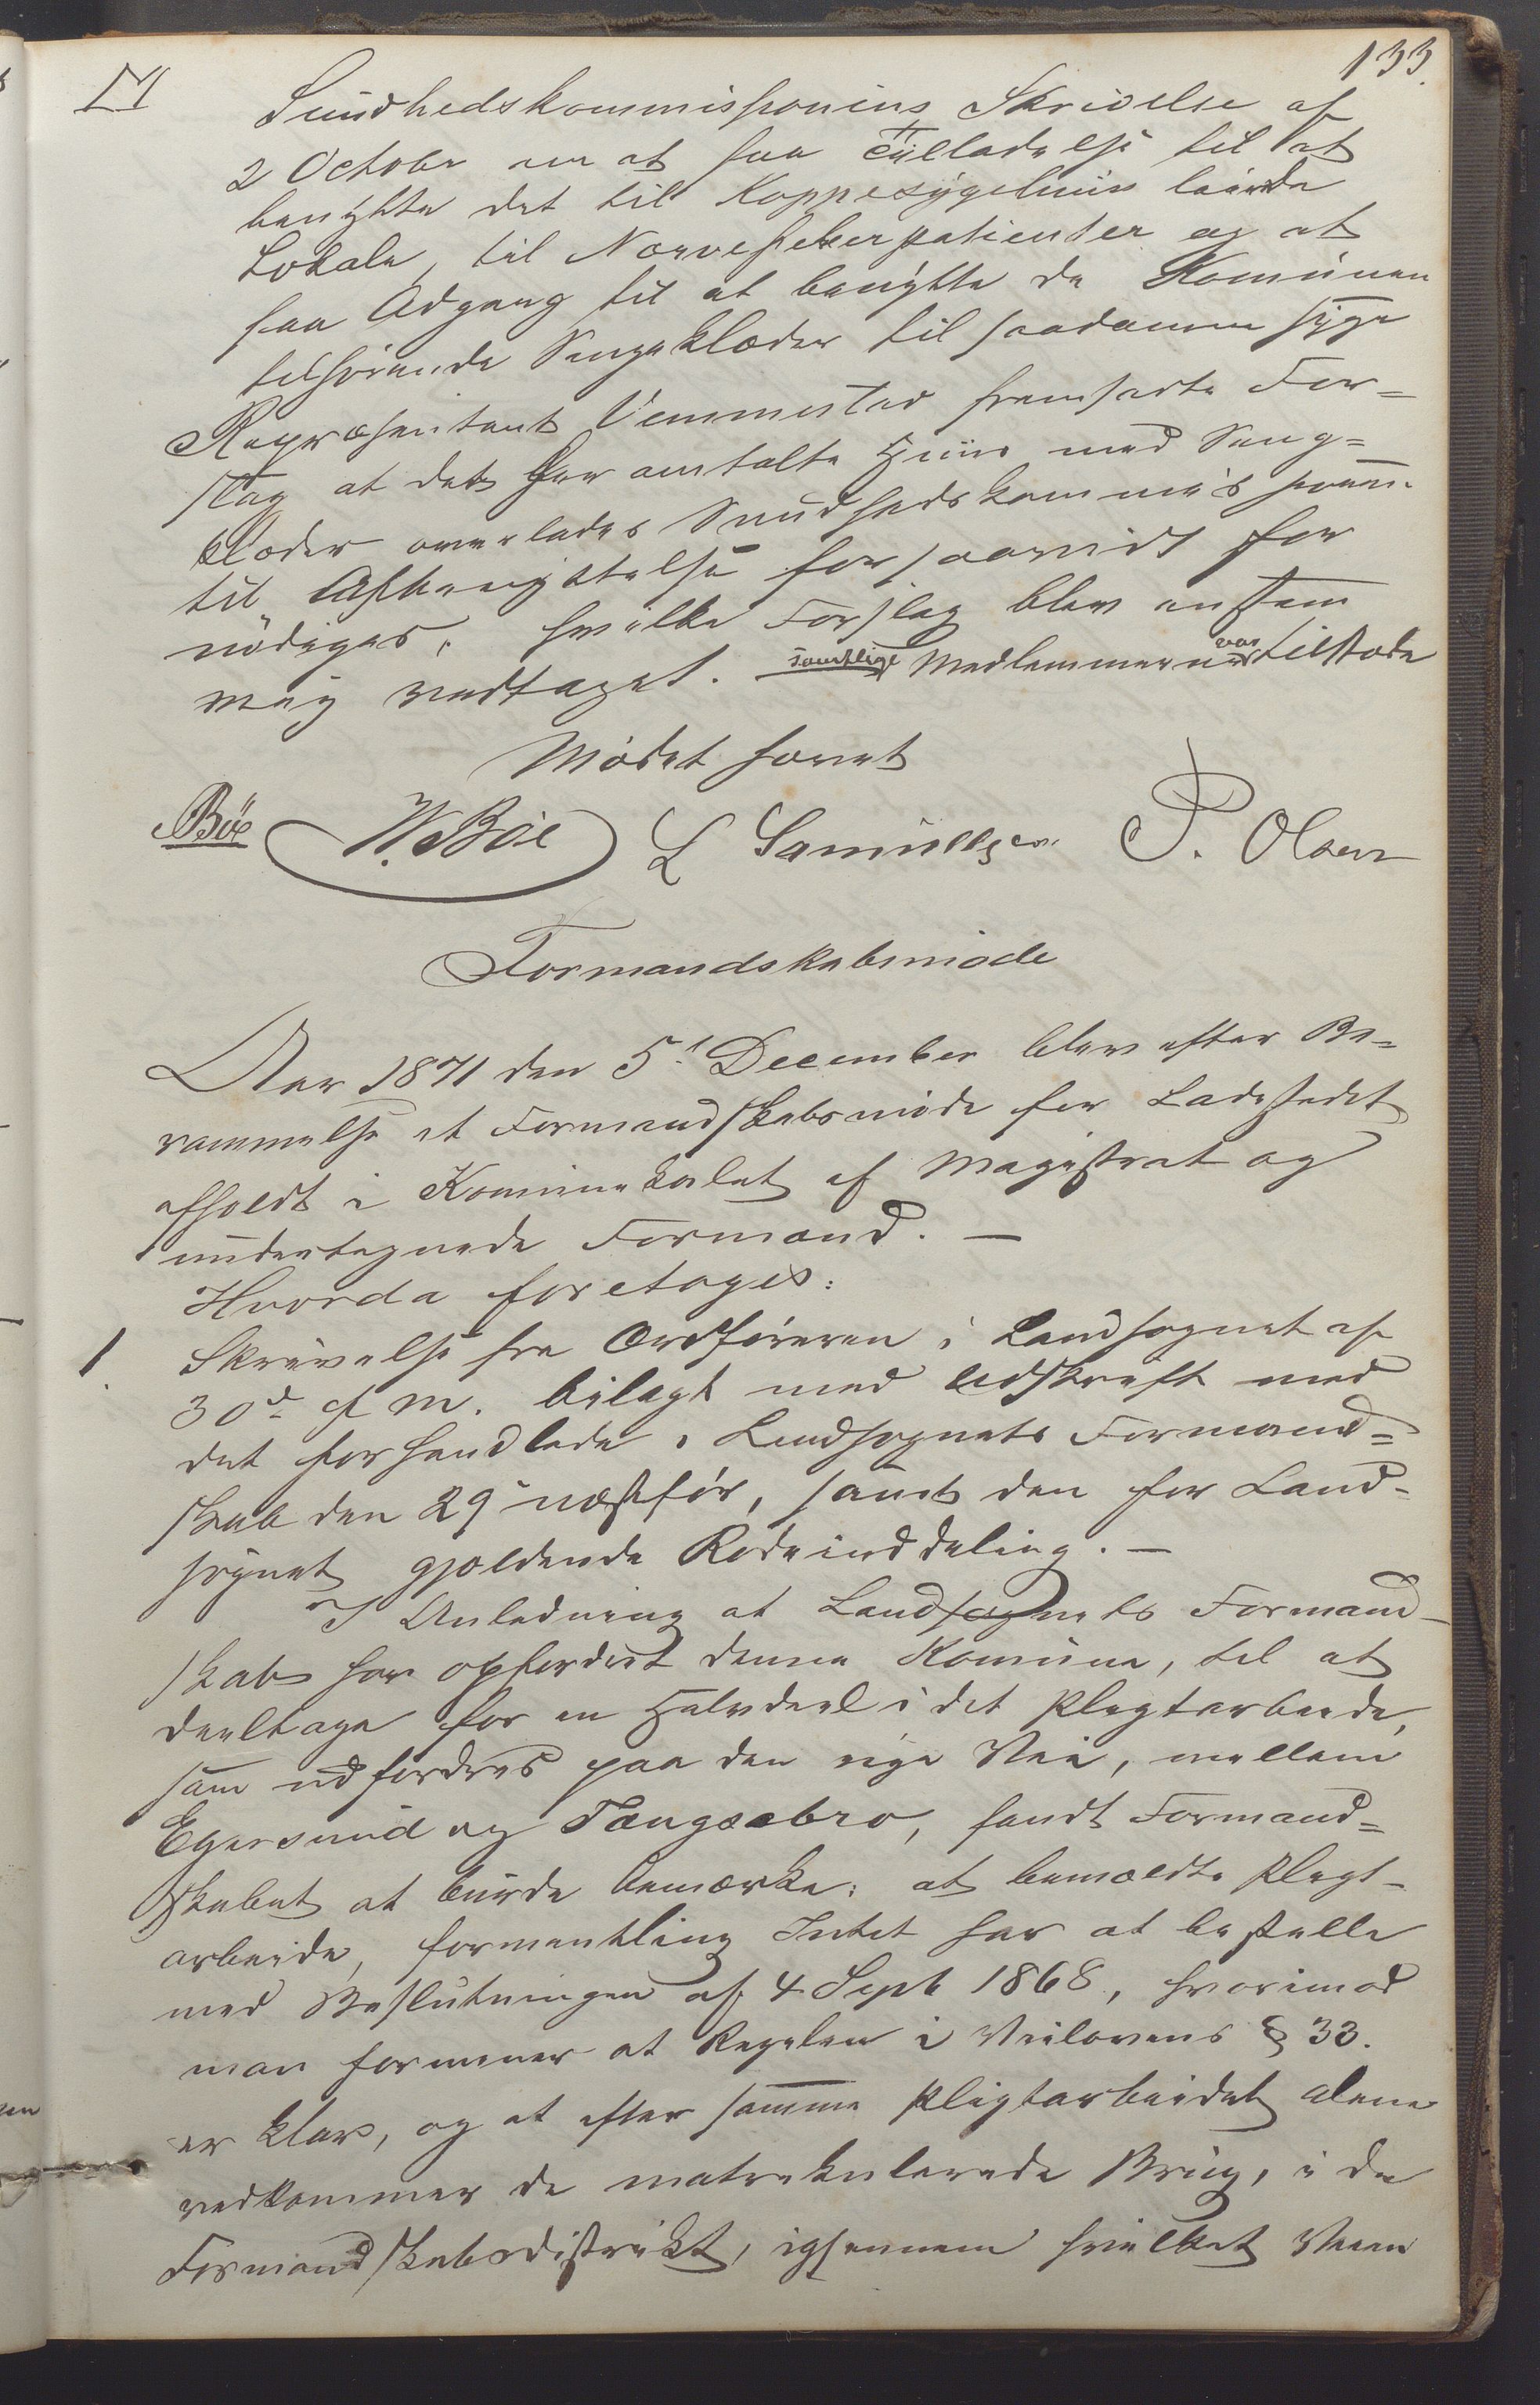 133.
Sundhedskommissionens Skrivelse af
2 October om at faa Tilladelse til at
benytte det til Koppesygehuus leiede
Lokale, til Nervefeberpatienter og at
faa Adgang til at benytte de Komunen
tilhørende Sengeklæder til saadanne syge
Repræsentant Vemmestad fremsatte For-
slag at det her omtalte Huus med Seng-
klæder overlades Sundhedskommissionen
til Afbenyttelse forsaavidt for
nødiges, hvilke Forslag blev enstem
mig vedtaget. samtlige Medlemmer var tilstede
Mødet hævet
Bøe W. Bøe L Samuelsen P. Olsen
Formandskabsmøde
Aar 1871 den 5. December blev efter Be-
rammelse et Formandskabsmøde for Ladestedet
afholdt i Kommunelokalet af Magistrat og
undertegnede Formænd. —
Hvorda foretoges:
1. Skrivelse fra Ordføreren i Landsognet af
30d. f. M. bilagt med Udskrift med
det forhandlede i Landsognets Formand-
skab den 29 næstfør, samt den for Land-
sognet gjældende Rodeinddeling. —
I Anledning at Landsognets Formand-
skab har opfordret denne Komune, til at
deeltage for en Halvdeel i det Pligtarbeide,
som udfordres paa den nye Vei, mellem
Egersund og Tengsebro, fandt Formand-
skabet at burde bemærke: at bemældte Pligt-
arbeide, formentling Intet har at bestelle
med Beslutningen af 4 Sept 1868, hvorimod
man formener at Regelen i Veilovens § 33.
er klar, og at efter samme Pligtarbeidet alene
vedkommer de matrekulerede Brug, i de
Formandskabsdistrikt, igjennem hvilket Veien